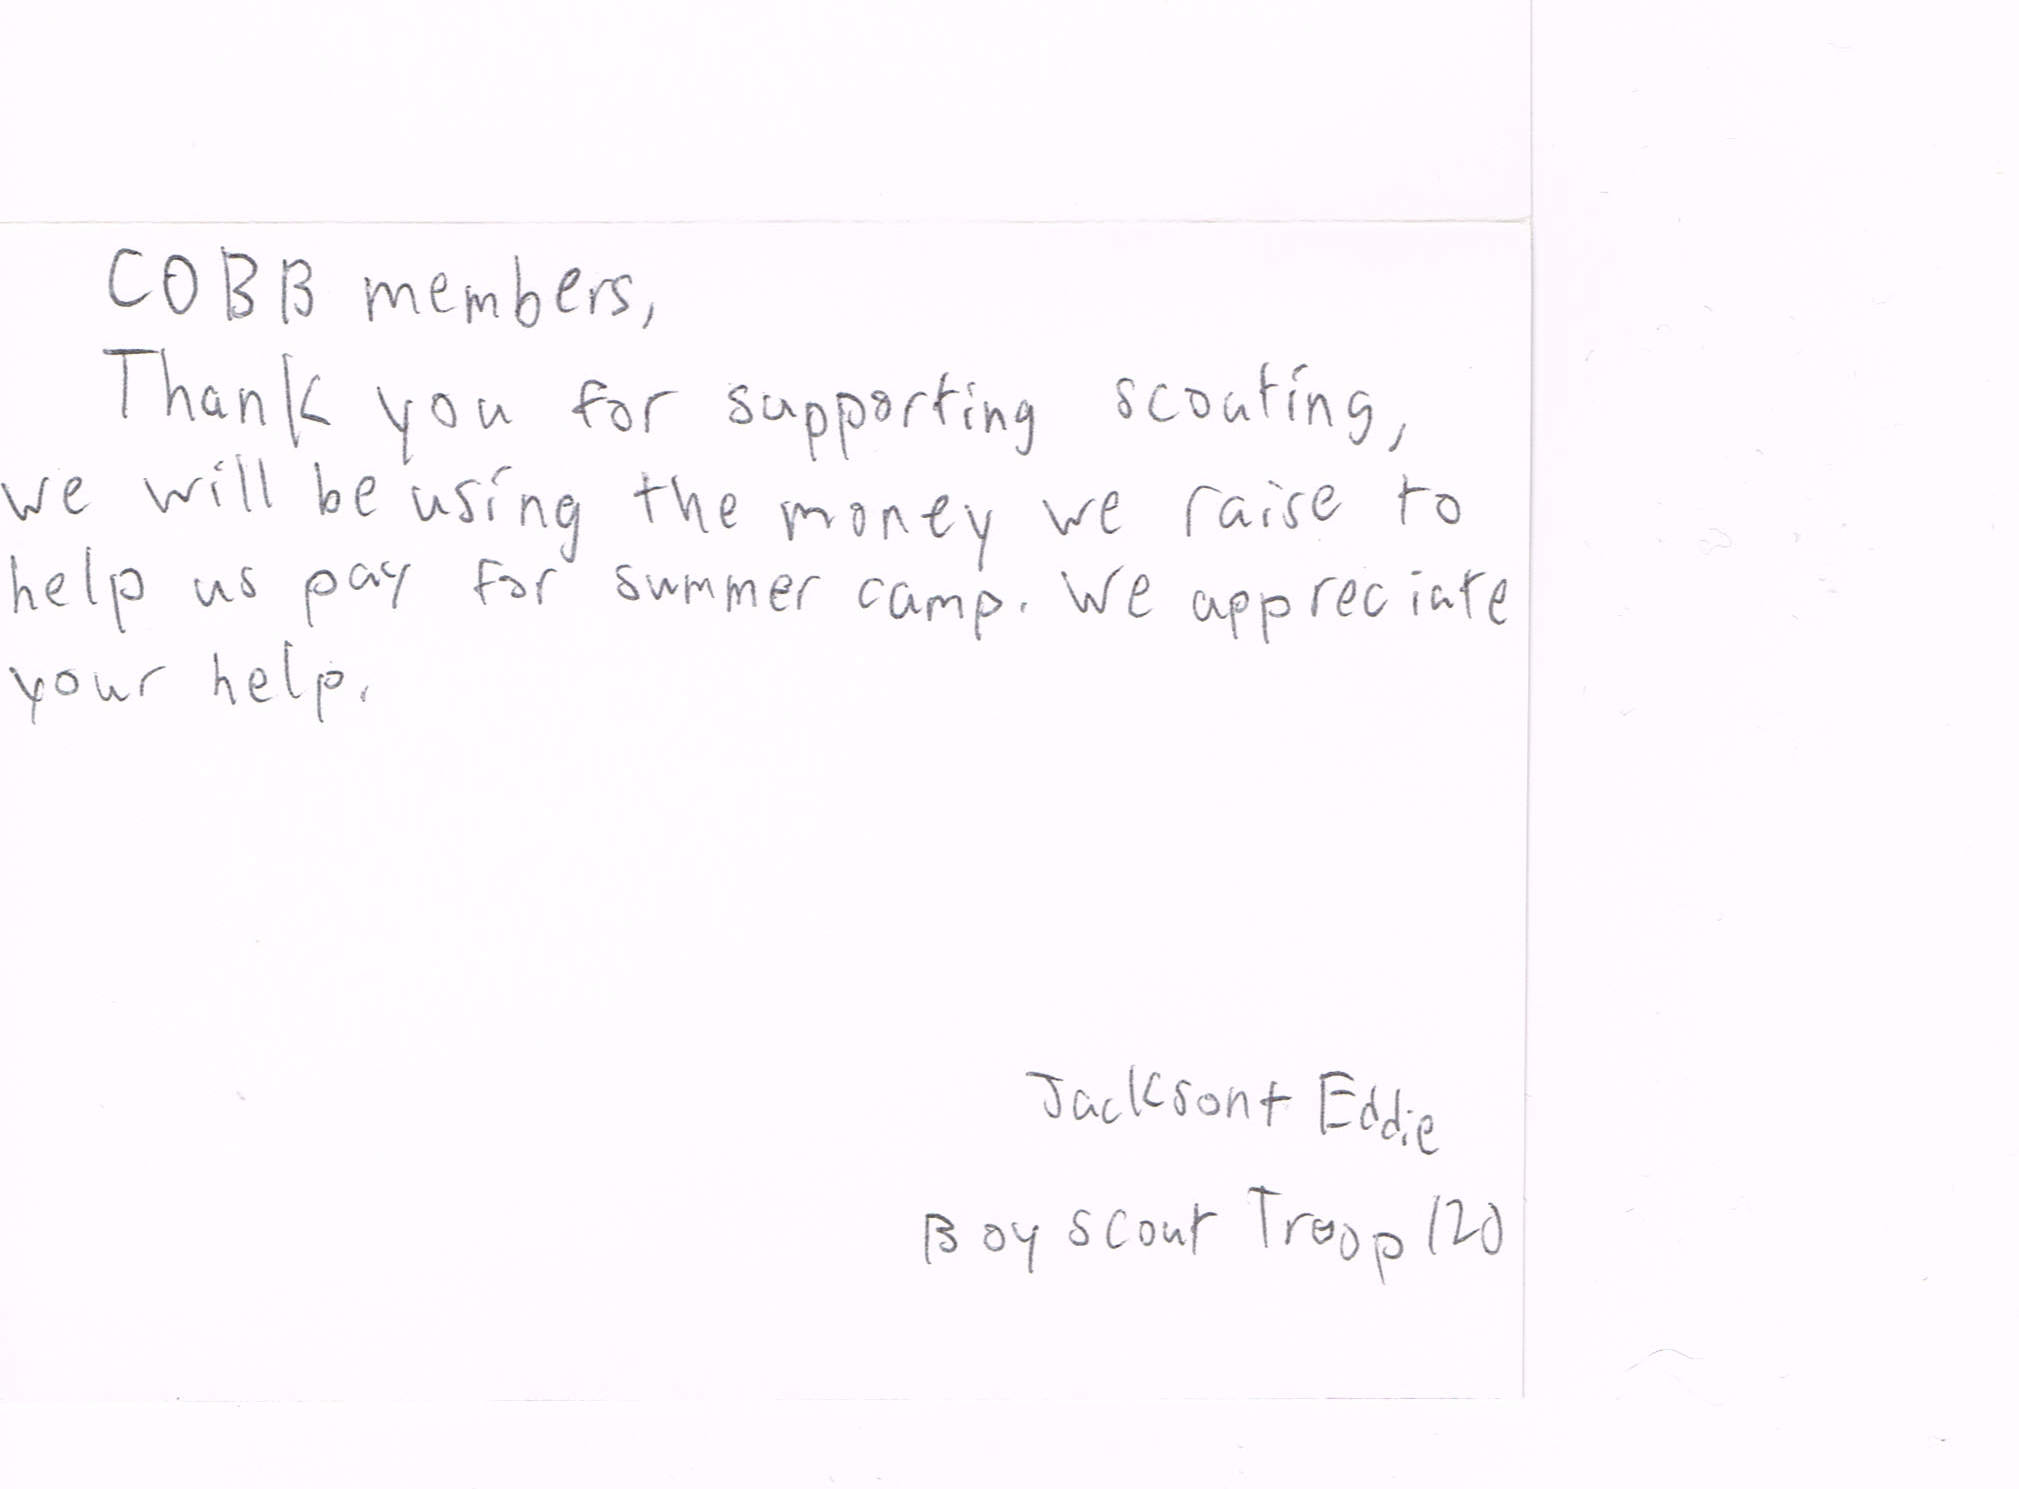 COBB members,
Thank you for supporting scouting,
we will be using the money we raise to
help us pay for summer camp. We appreciate
your help.
Jackson + Eddie
Boy scout Troop 120